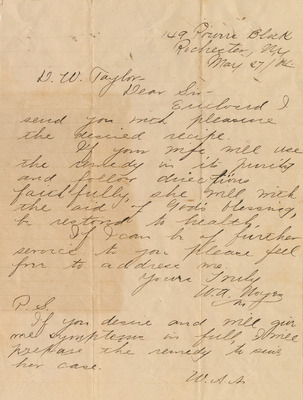 149 Powers Block
Rochester, NY
May 27/
D. W. Taylor-
Dear Sir-
Enclosed I
send you with pleasure
the desired recipe.
If your wife will use
the remedy in it purity
and follow directions
faithfully she will with
the aid of God's blessing,
be restored to health.
If I can be of further
service to you please feel
free to address me.
Yours Truly
W.A.
P.S.
If you desire and will give
me symptoms in full, I will
prepare the remedy to suit
her case.
W.A.